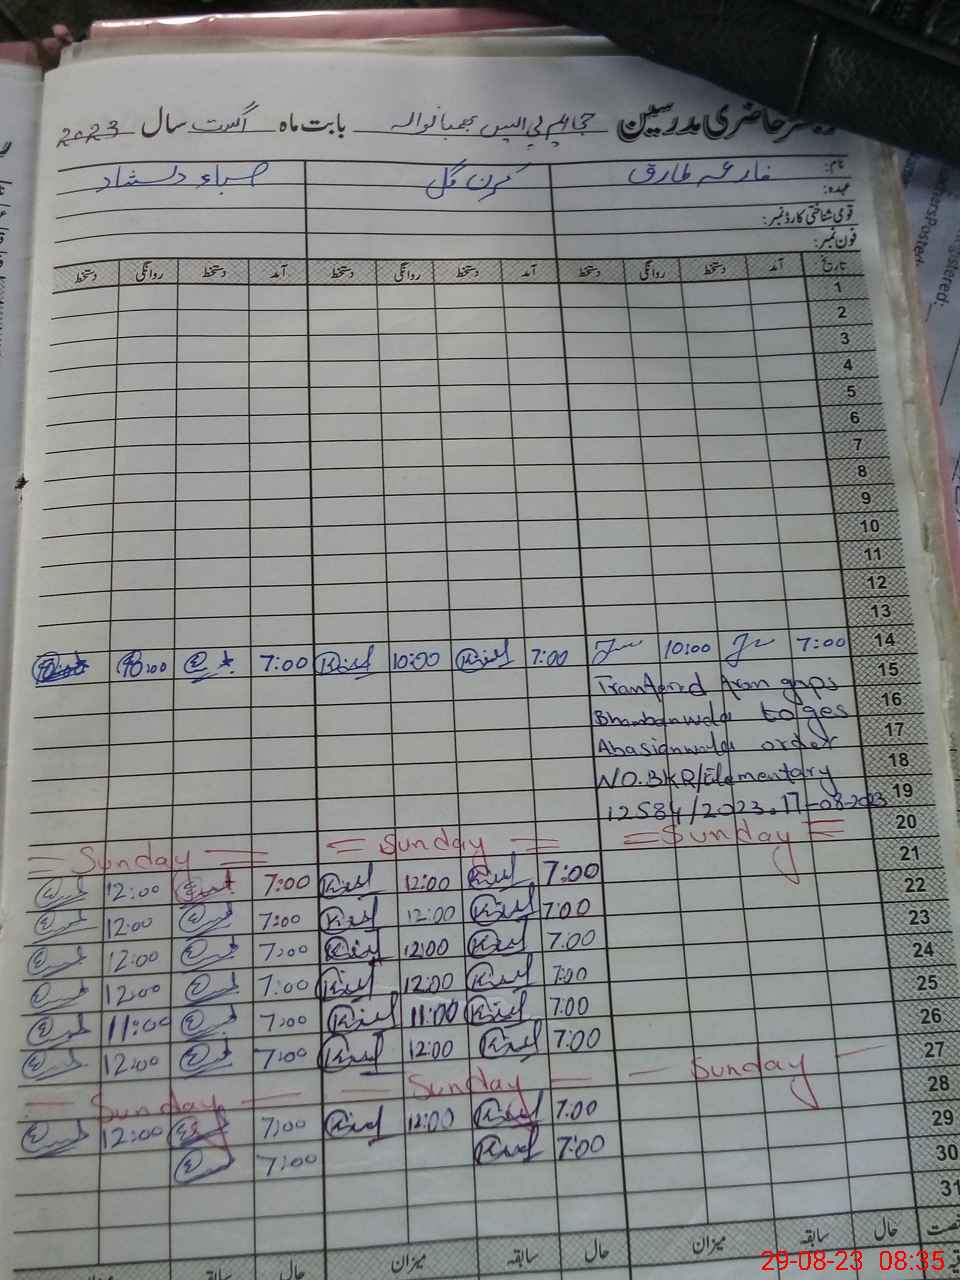 رجسٹر حاضری مدرسین جی ایم پی ایس بھمبانوالہ بابت ماہ اگست سال 2023
نام: فارعہ طارق کرن گل صباء دلشاد
عہدہ:
قومی شناختی کارڈ نمبر:
فون نمبر:
تاریخ آمد دستخط روانگی دستخط آمد دستخط روانگی دستخط آمد دستخط روانگی دستخط
1
2
3
4
5
6
7
8
9
10
11
12
13
14 7:00 10:00 7:00 10:00 7:00 10:00
15
16
17
18
19
Bhambanwala to ges
order
NO. BKR/Elementary
12584/2023. 17-08-2023
20 = Sunday = = Sunday = = Sunday =
21 7:00 12:00 7:00 12:00
22 7:00 12:00 7:00 12:00
23 7:00 12:00 7:00 12:00
24 7:00 12:00 7:00 12:00
25 7:00 11:00 7:00 11:00
26 7:00 12:00 7:00 12:00
27 — Sunday — — Sunday — — Sunday —
28 7:00 12:00 7:00 12:00
29 7:00 7:00
30
31
حال سابقہ میزان حال سابقہ میزان حال سابقہ میزان
29-08-23 08:35